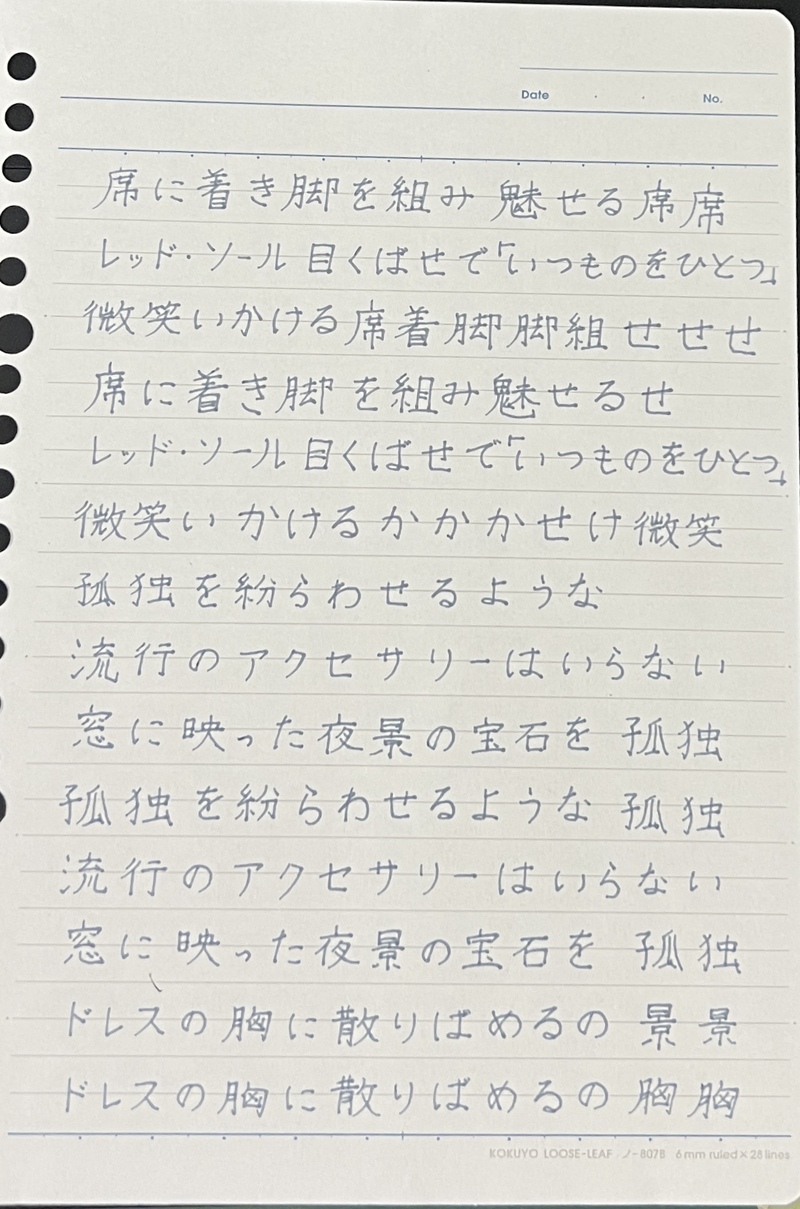 Date ・ ・ No.
席に着き脚を組み 魅せる席席
レッド・ソール 目くばせで「いつものをひとつ」
微笑いかける席着脚脚組せせせ
席に着き脚を組み魅せるせ
レッド・ソール 目くばせで「いつものをひとつ」
微笑いかけるかかかせけ微笑
孤独を紛らわせるような
流行のアクセサリーはいらない
窓に映った夜景の宝石を 孤独
孤独を紛らわせるような 孤独
流行のアクセサリーはいらない
窓に映った夜景の宝石を 孤独
ドレスの胸に散りばめるの 景景
ドレスの胸に散りばめるの 胸胸
KOKUYO LOOSE-LEAF ノ-807B 6mm ruled×28 lines